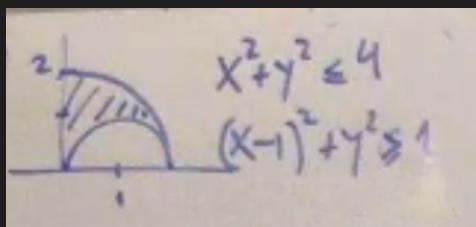 2
x²+y² ≤ 4
(x-1)²+y² ≥ 1
1